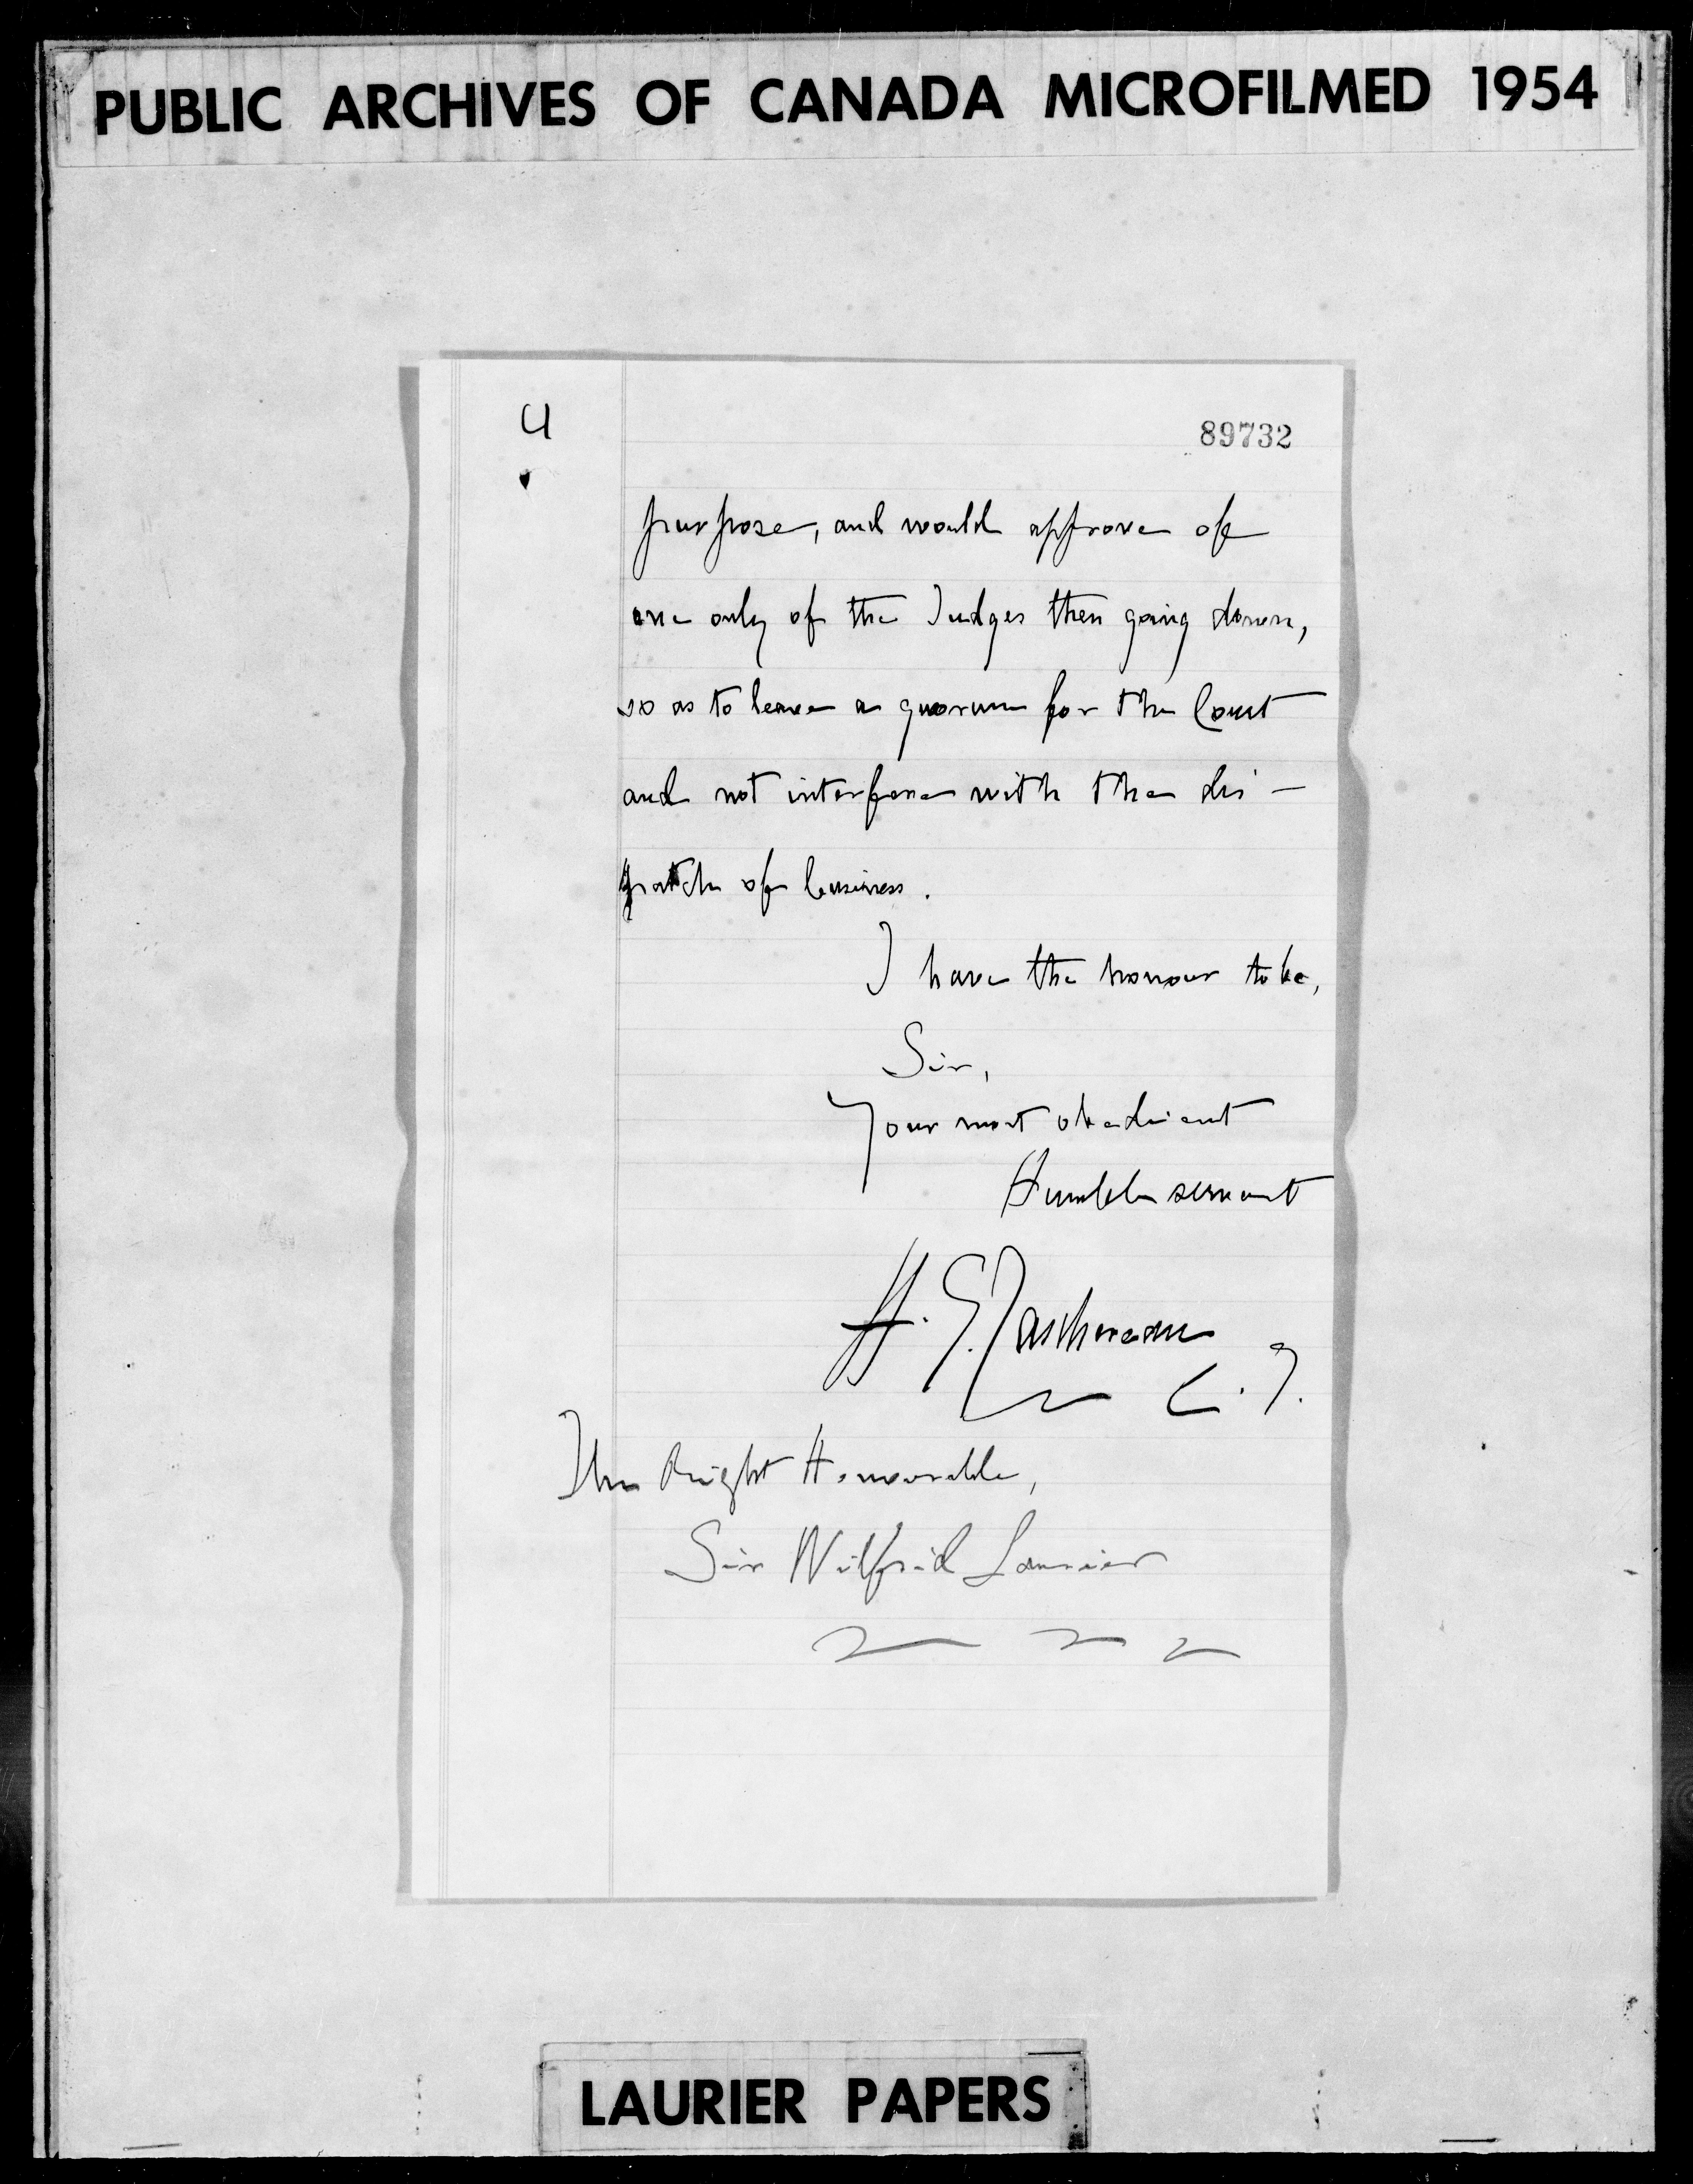 PUBLIC ARCHIVES OF CANADA MICROFILMED 1954
4
89732
purpose, and would approve of
one only of the Judges then going down,
so as to leave a quorum for the Court
and not interfere with the dis-
patch of business.
I have the honour to be,
Sir,
Your most obedient
Humble servant
H. E. Taschereau
C. J.
The Right Honourable,
Sir Wilfrid Laurier
LAURIER PAPERS